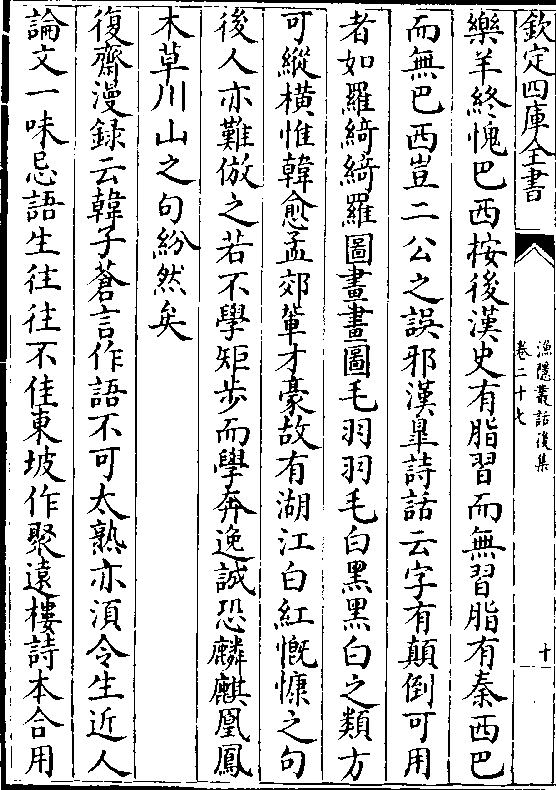 欽定四庫全書
漁隱叢話後集
卷二十七
十
樂羊終愧巴西桉後漢史有脂習而無習脂有秦西巴
而無巴西豈二公之誤邪漢臯詩話云字有顛倒可用
者如羅綺綺羅圖畫畫圖毛羽羽毛白黑黑白之類方
可縱橫惟韓愈孟郊軰才豪故有湖江白紅慨慷之句
後人亦難倣之若不學矩步而學奔逸誠恐麟麒凰鳳
木草川山之句紛然矣
復齋漫録云韓子蒼言作語不可太熟亦須令生近人
論文一味忌語生往往不佳東坡作聚遠樓詩本合用